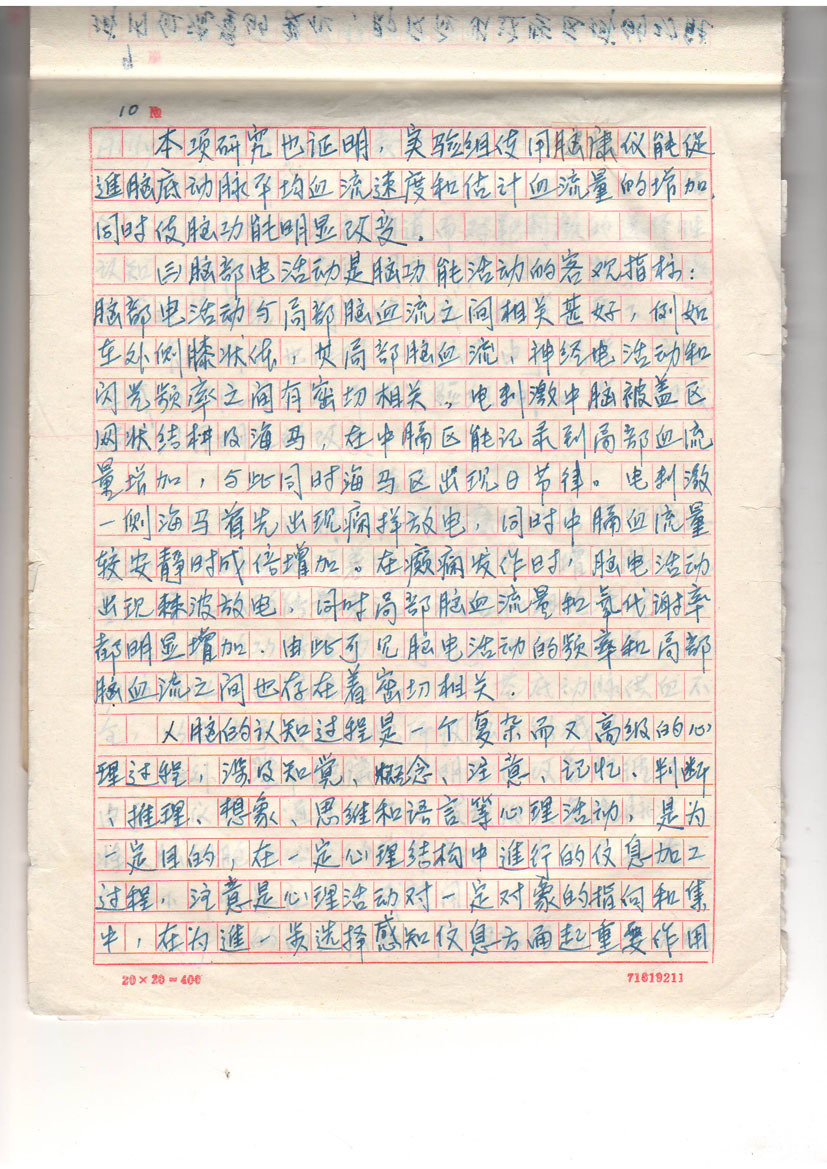 10 №
本项研究也证明,实验组使用脑康仪能促
進脑底动脉平均血流速度和估计血流量的增加,
同时使脑功能明显改变.
㈢脑部电活动是脑功能活动的客观指标:
脑部电活动与局部脑血流之间相关甚好,例如
在外侧膝状体,其局部脑血流,神经电活动和
闪光频率之间有密切相关,电刺激中脑被盖区
网状结构及海马,在中膈区能记录到局部血流
量增加,与此同时海马区出现θ节律。电刺激
一侧海马首先出现痫样放电,同时中膈血流量
较安静时成倍增加。在癫痫发作时,脑电活动
出现棘波放电,同时局部脑血流量和氧代谢率
都明显增加.由此可见脑电活动的频率和局部
脑血流之间也存在着密切相关.
人脑的认知过程是一个复杂而又高级的心
理过程,涉及知觉、概念、注意、记忆、判断
、推理、想象、思维和语言等心理活动,是为
一定目的,在一定心理结构中進行的信息加工
过程,注意是心理活动对一定对象的指向和集
中,在为進一步选择感知信息方面起重要作用
20×20=400 71619211